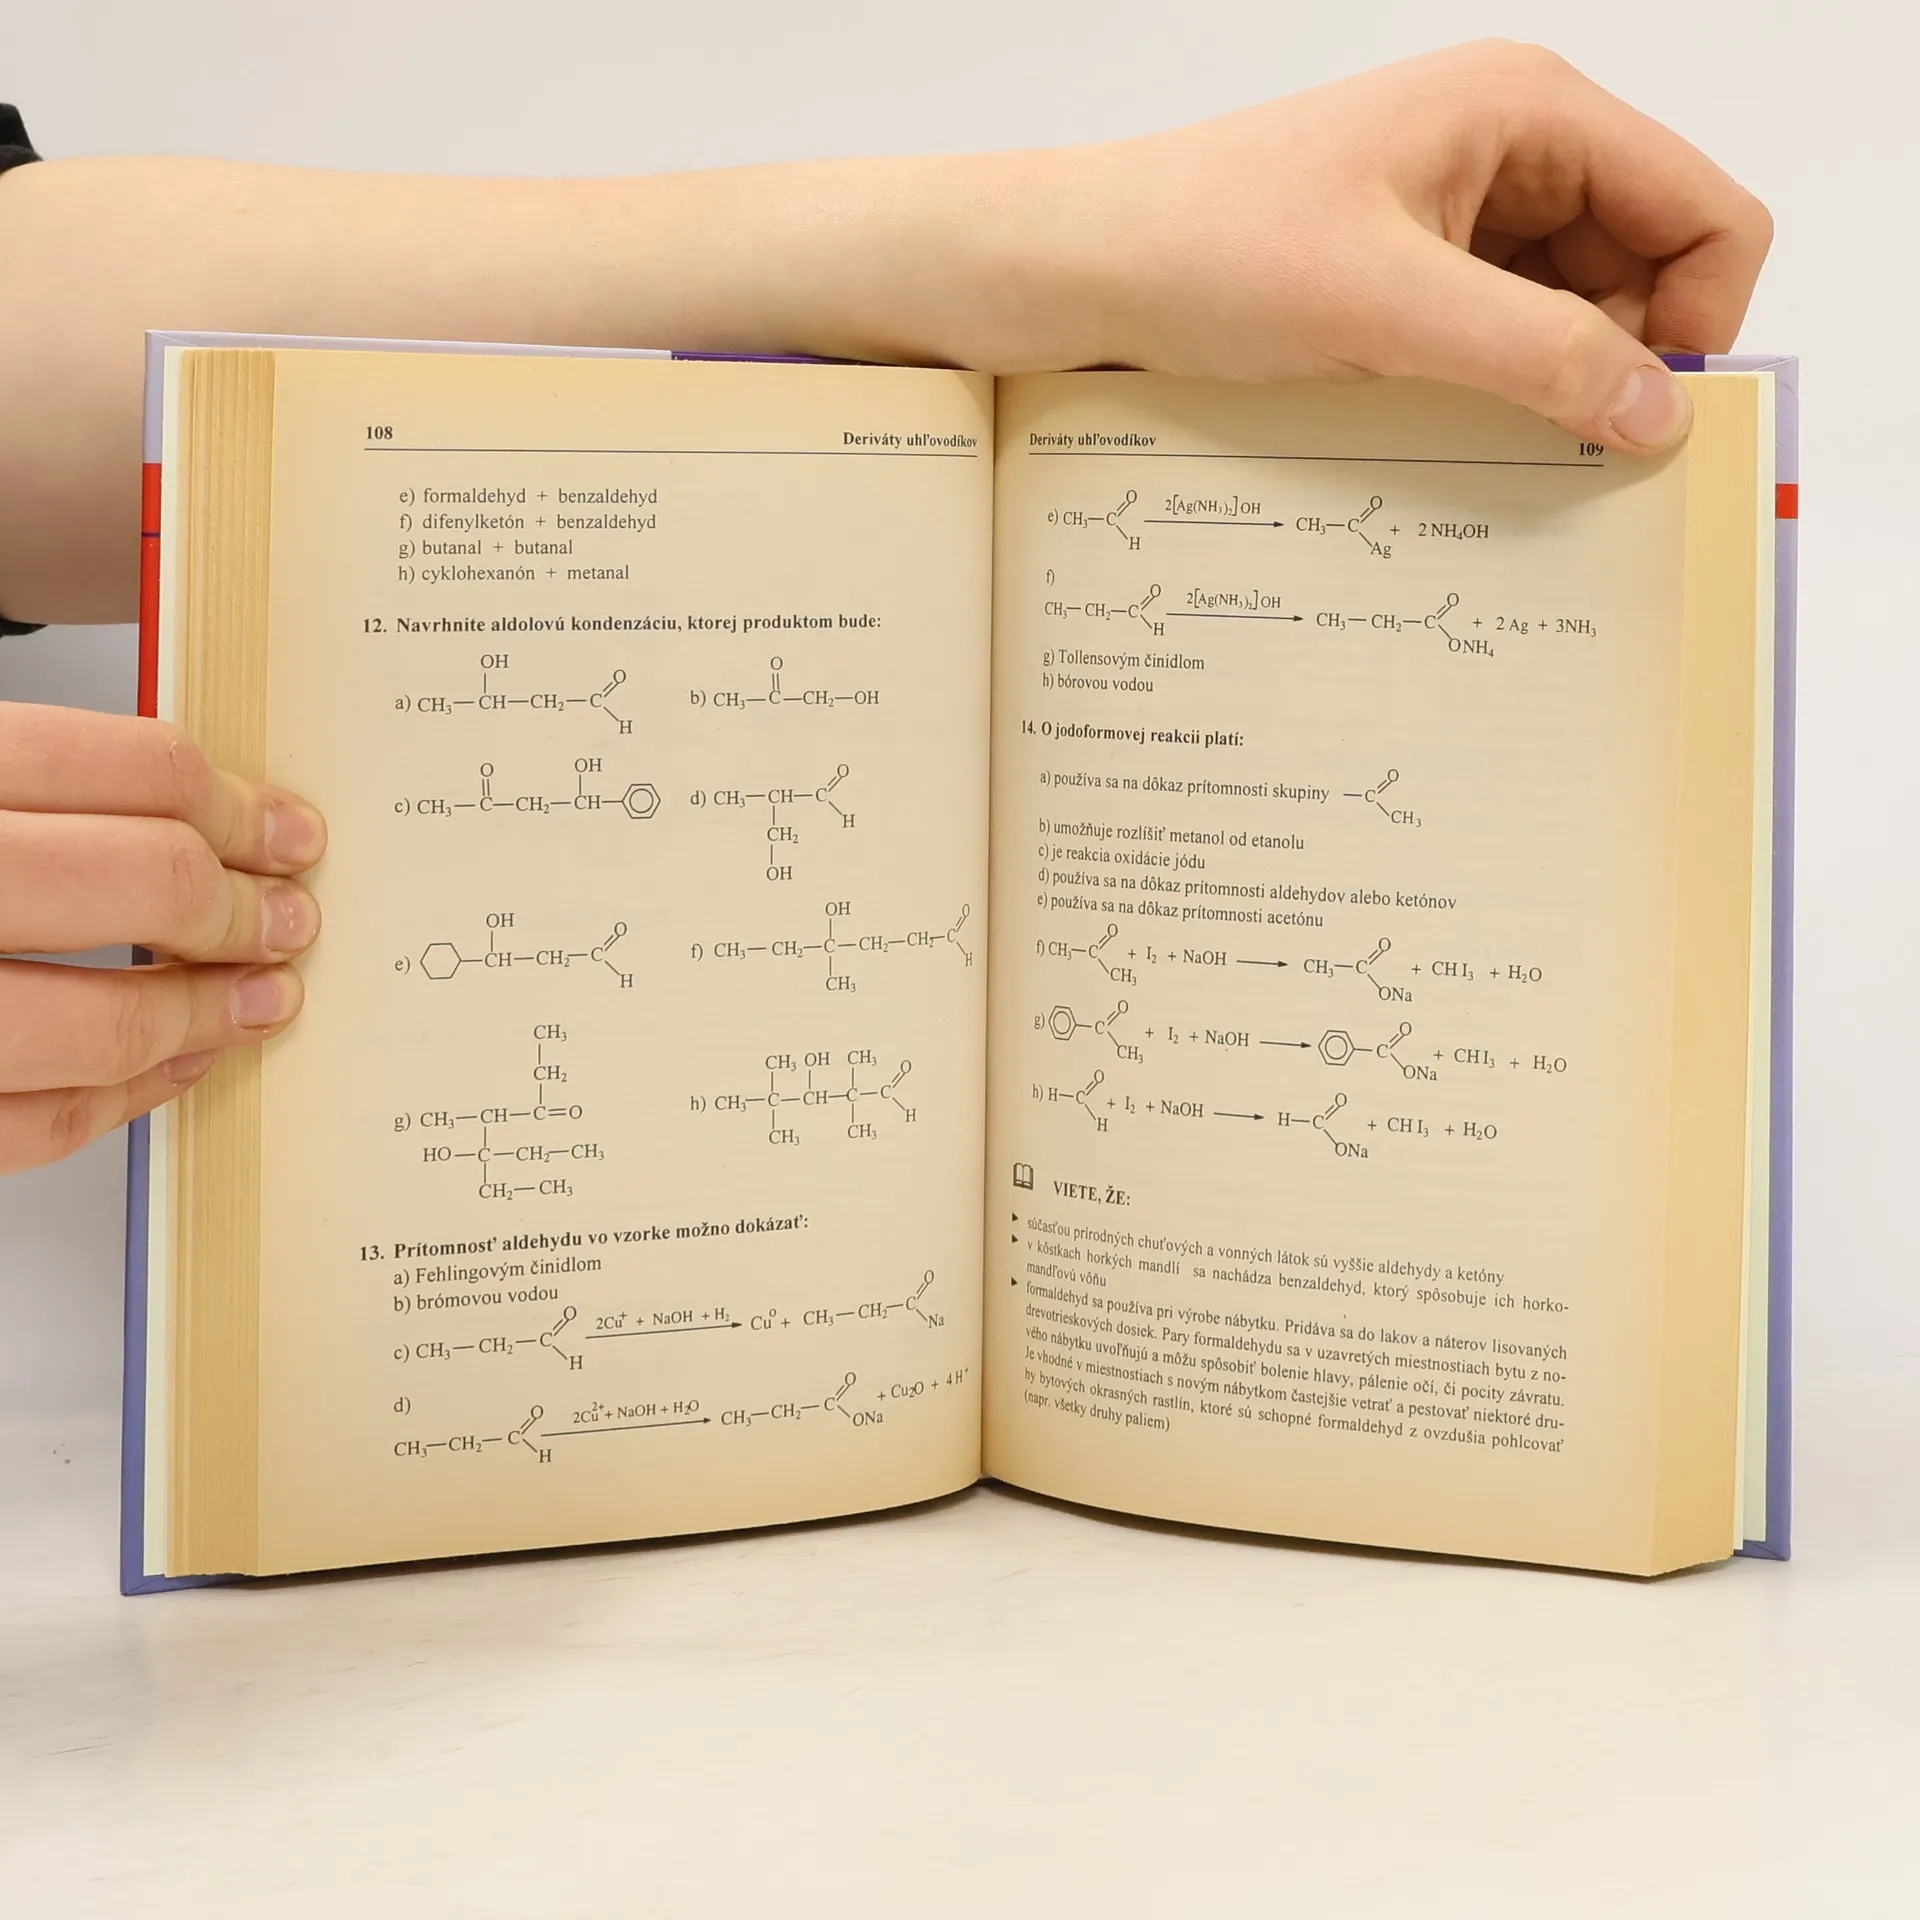 108
Deriváty uhľovodíkov
e) formaldehyd + benzaldehyd
f) difenylketón + benzaldehyd
g) butanal + butanal
h) cyklohexanón + metanal
12. Navrhnite aldolovú kondenzáciu, ktorej produktom bude:
OH
O
O
a) CH₃—CH—CH₂—C
H
b) CH₃—C—CH₂—OH
O
OH
O
c) CH₃—C—CH₂—CH—
d) CH₃—CH—C
H
CH₂
OH
OH
OH
O
O
e) —CH—CH₂—C
H
f) CH₃—CH₂—C—CH₂—CH₂—C
H
CH₃
CH₃
CH₂
g) CH₃—CH—C=O
HO—C—CH₂—CH₃
CH₂—CH₃
CH₃ OH CH₃
O
h) CH₃—C—CH—C—C
H
CH₃ CH₃
13. Prítomnosť aldehydu vo vzorke možno dokázať:
a) Fehlingovým činidlom
b) brómovou vodou
c) CH₃—CH₂—C O H 2Cu⁺ + NaOH + H₂ Cu⁰ + CH₃—CH₂—C O Na
d)
CH₃—CH₂—C O H 2Cu²⁺ + NaOH + H₂O CH₃—CH₂—C O ONa + Cu₂O + 4H⁺
Deriváty uhľovodíkov
109
e) CH₃—C O H 2[Ag(NH₃)₂]OH CH₃—C O Ag + 2 NH₄OH
f)
CH₃—CH₂—C O H 2[Ag(NH₃)₂]OH CH₃—CH₂—C O ONH₄ + 2 Ag + 3NH₃
g) Tollensovým činidlom
h) bórovou vodou
14. O jodoformovej reakcii platí:
a) používa sa na dôkaz prítomnosti skupiny —C O CH₃
b) umožňuje rozlíšiť metanol od etanolu
c) je reakcia oxidácie jódu
d) používa sa na dôkaz prítomnosti aldehydov alebo ketónov
e) používa sa na dôkaz prítomnosti acetónu
f) CH₃—C O CH₃ + I₂ + NaOH → CH₃—C O ONa + CHI₃ + H₂O
g) —C O CH₃ + I₂ + NaOH → —C O ONa + CHI₃ + H₂O
h) H—C O H + I₂ + NaOH → H—C O ONa + CHI₃ + H₂O
VIETE, ŽE:
súčasťou prírodných chuťových a vonných látok sú vyššie aldehydy a ketóny
v kôstkach horkých mandlí sa nachádza benzaldehyd, ktorý spôsobuje ich horko-
mandľovú vôňu
formaldehyd sa používa pri výrobe nábytku. Pridáva sa do lakov a náterov lisovaných
drevotrieskových dosiek. Pary formaldehydu sa v uzavretých miestnostiach bytu z no-
vého nábytku uvoľňujú a môžu spôsobiť bolenie hlavy, pálenie očí, či pocity závratu.
Je vhodné v miestnostiach s novým nábytkom častejšie vetrať a pestovať niektoré dru-
hy bytových okrasných rastlín, ktoré sú schopné formaldehyd z ovzdušia pohlcovať
(napr. všetky druhy paliem)